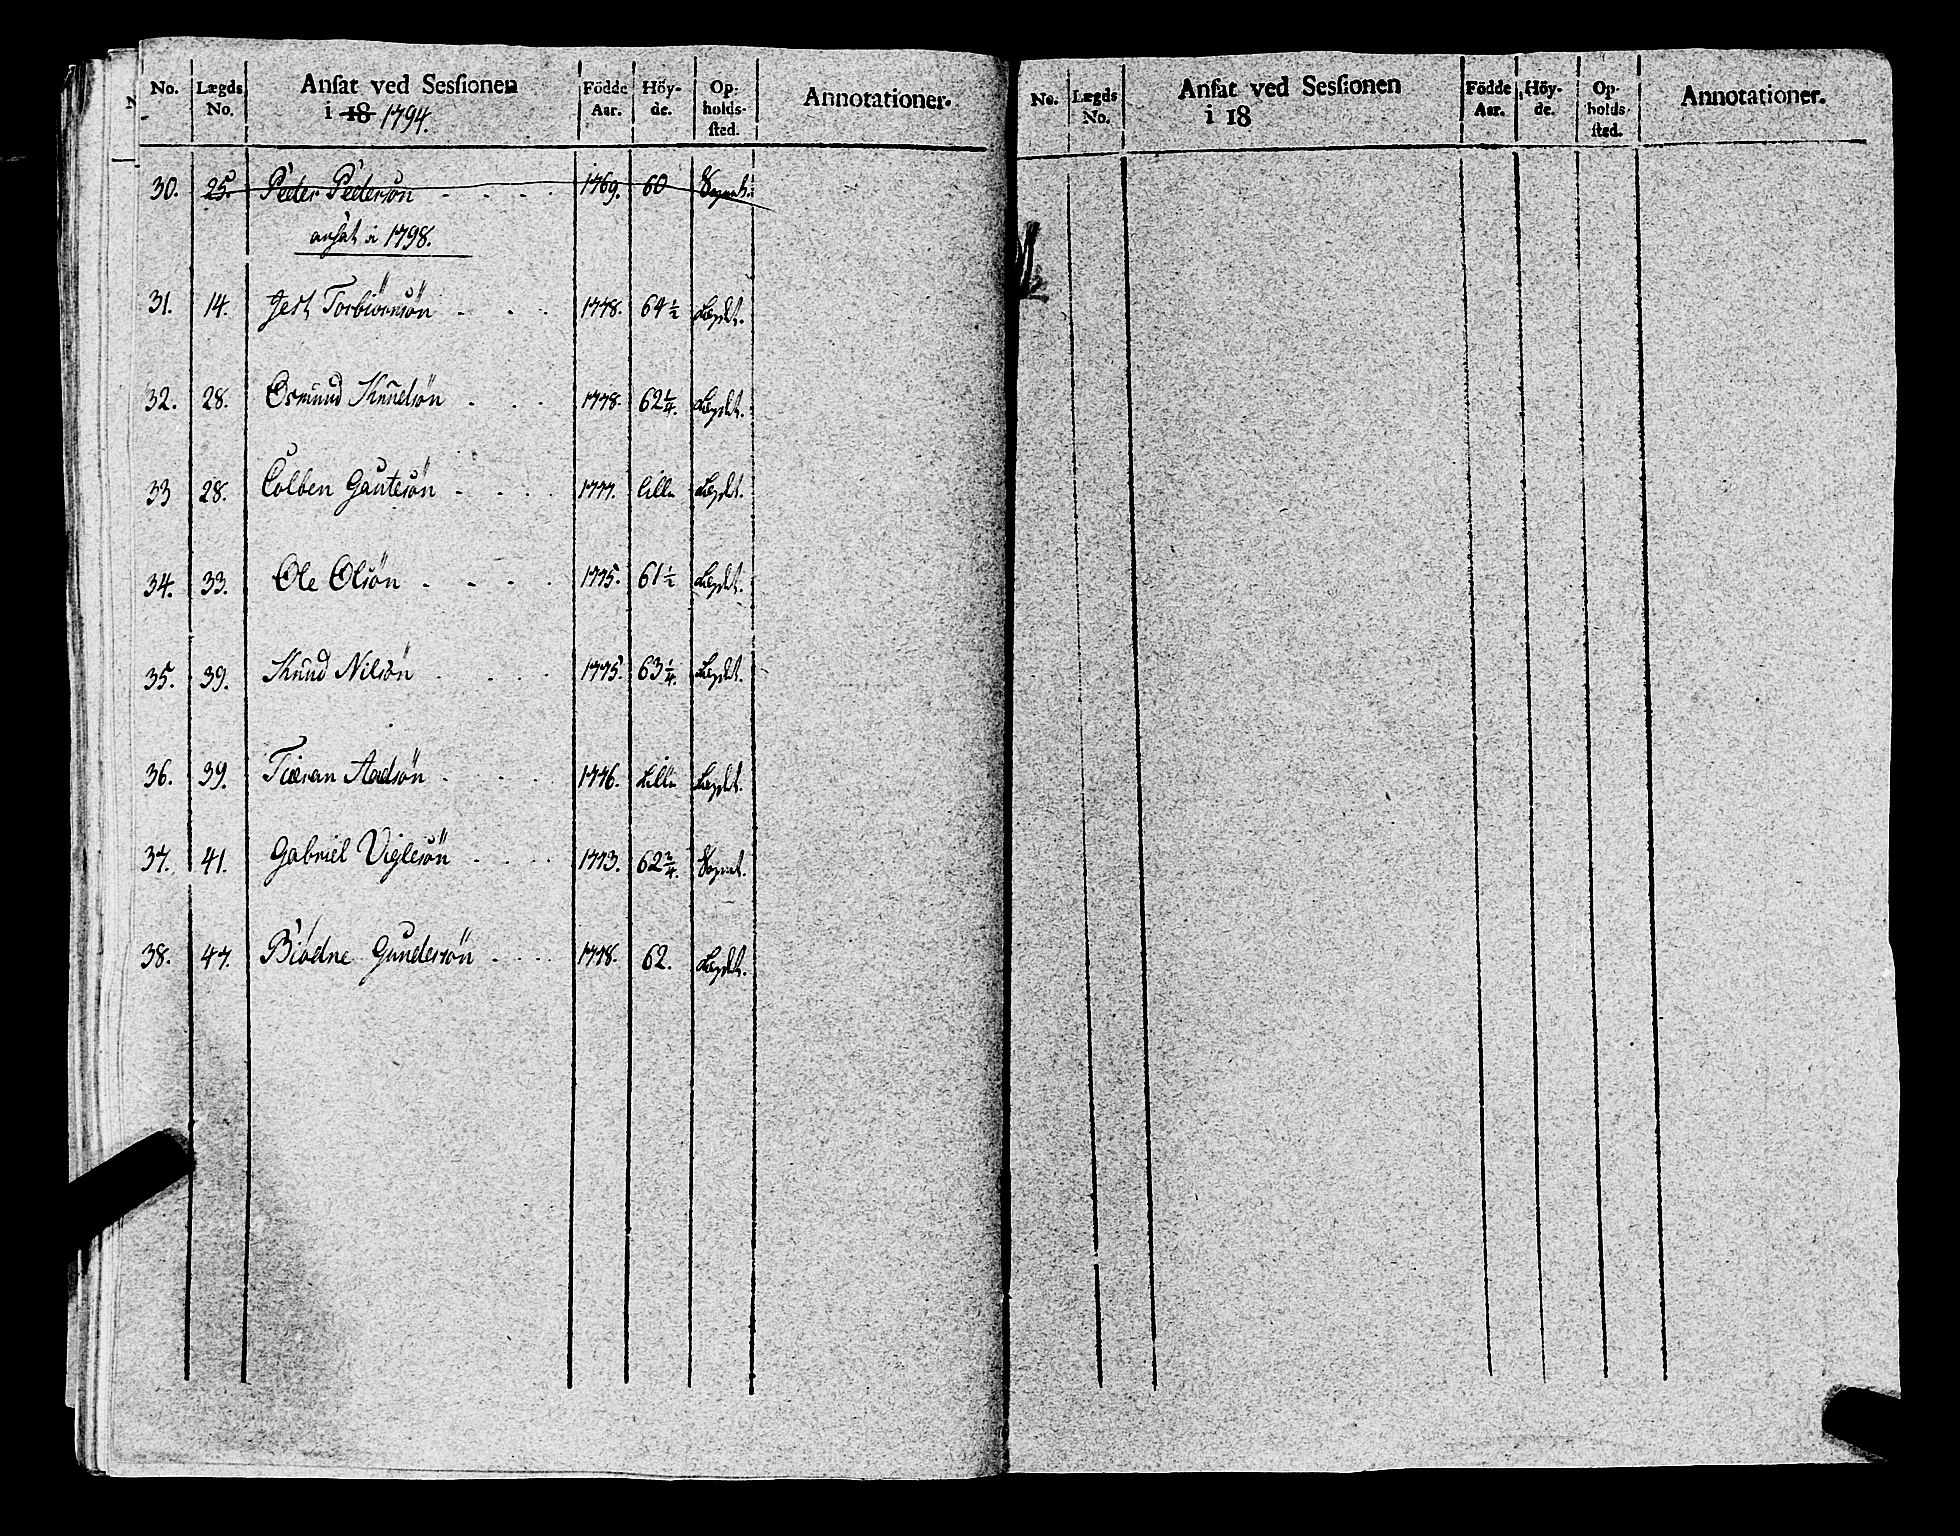 No. Lægds No. Ansat ved Sessionen i 18 1794. Födde Aar. Höy-de. Op-holds-sted. Annotationer.
30. 25. Peder Pedersön 1769. 60
ansat i 1798.
31. 14. Torbiörnsön 1778. 64 1/2 Lægdet.
32. 28. Osmund Knudsön 1778. 62 1/4. Lægdet.
33 28. Colben Gautesön 1777. lille Lægdet.
34. 33. Ole Olsön 1775. 61 1/2 Lægdet.
35. 39. Knud Nilsön 1775. 63 1/4. Lægdet.
36. 39. Tiæran Aadsön 1776. Lille Lægdet.
37. 41. Gabriel Viglesön 1773. 62 3/4. Sognet.
38. 47. Biödne Gundersön 1778. 62. Lægdet.
No. Lægds No. Ansat ved Sessionen i 18 Födde Aar. Höy-de. Op-holds-sted. Annotationer.